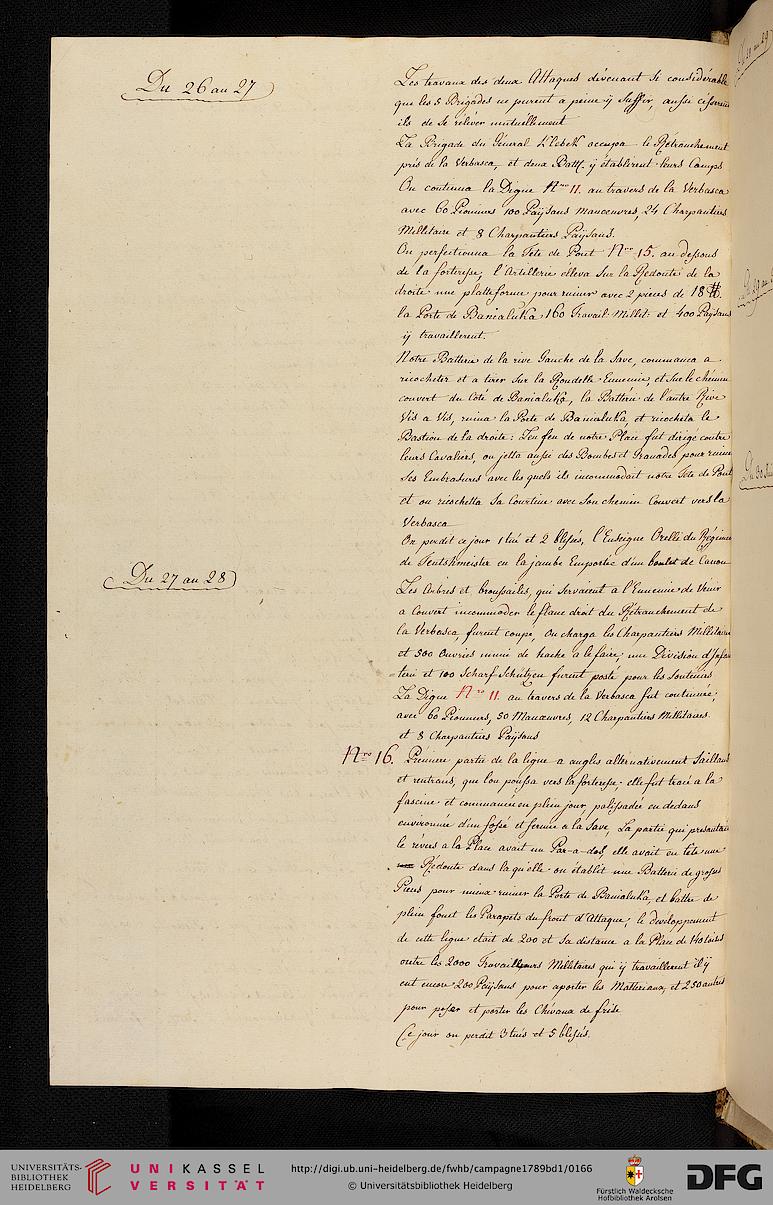 Du 26 au 27
Les travaux des deux Attaques devenant si considérable
que les 5 Brigades ne purent a peine ÿ Suffir, aussi
ils de se relever mutuéllement
La Brigade du Géneral Klebek occupa le Rétranchement
près de la Verbasca, et deux Batt. ÿ établirent leurs Camps
On continua la Digue Nro 11. au travers de la Verbasca
avec 60 Pionniers 100 Paÿsans manoeuvres, 24 Charpantiers
Millitaire et 8 Charpantiers Paÿsans.
On perfectionna la Tete de Pont Nro 15. au dessous
de la forteresse, l'Artillerie éleva Sur la Redoute de la
droite une platteforme pour ruiner avec 2 pieces de 18 ℔.
la Porte de Banialuka, 160 Travail: Millit: et 400 Paÿsans
ÿ travaillerent.
Notre Batterie de la rive Gauche de la Save, commanca a
ricocheter et a tirer Sur la Rondelle Ennemie, et Sur le chémin
couvert du Coté de Banialuka, la Battérie de l'autre Rive
Vis a Vis, ruina la Porte de Banialuka et ricocheta le
Bastion de la droite: Le feu de notre Place fut dirigé contre
leurs Cavaliers, on jetta aussi des Bombes et Granades pour ruiner
Ses Embrasures avec les quels ils incommodait notre Tete de Pont
et on ricochetta Sa Courtine avec Son chemin Couvert vers la
Verbasca
On perdit ce jour 1 tué et 2 blessés, l'Enseigne Orelli du Régiment
de Teutschmeister eu la jambe Emportée d'un boulet de Canon
Du 27 au 28
Les Arbres et broussailes, qui Servaient a l'Ennemie de Venir
a Couvert incommoder le flanc droit du Rétranchement de
la Verbasca, furent coupe, On charga les Charpantiers Millitaires
et 300 Ouvries munie de hache a le faire, une Division d'Infan
=terie et 100 Scharf-Schützen furent posté pour les Soutenirs
La Digue Nro 11. au travers de la Verbasca fut continuée,
avec 60 Pionniers, 50 Manœuvres, 12 Charpantiers Millitaires
et 8 Charpantiers Paÿsans
Nro 16. Prémiere partie de la ligne a angles alternativement Saillans
et rentrans, que l'on poussa vers la forteresse elle fut tracé a la
fascine et commancée en plein jour, palissadée en dedans
environnée d'un fossé et fermée a la Save, La partie qui presantait
le révers a la Place avait un Par-a-dos, elle avait en tete une
Rédoute dans la qu'elle on établit une Batterie de grosses
Pieces pour mieux ruiner la Porte de Banialuka, et battre de
plein fouet les Parapets du front d'Attaque, le dévéloppement
de cette ligne etait de 200 et Sa distance a la Place de 140 toises
outre les 2000 Travailleurs Millitaires qui ÿ travaillerent il ÿ
eut encore 200 Paÿsans pour aporter les Matteriaux, et 250 autres
pour poser et porter les Chévaux de frise
Ce jour on perdit 3 tués et 5 blessés.
UNIVERSITÄTS-
BIBLIOTHEK
HEIDELBERG
UNIKASSEL
VERSITÄT
http://digi.ub.uni-heidelberg.de/fwhb/campagne1789bd1/0166
© Universitätsbibliothek Heidelberg
Fürstlich Waldecksche
Hofbibliothek Arolsen
DFG